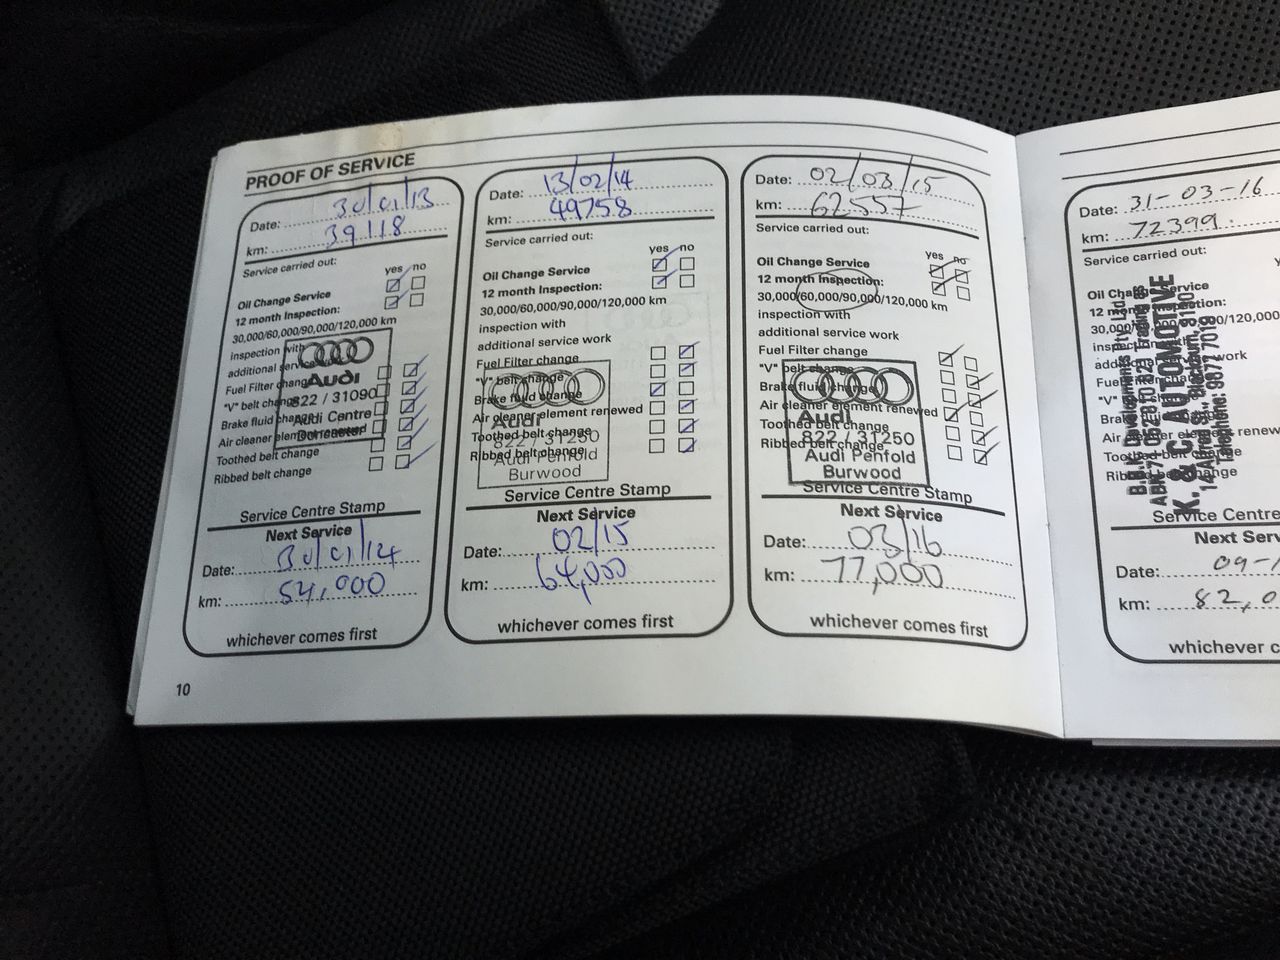 PROOF OF SERVICE
Date: 30/01/13
km: 39118
Service carried out:
yes no
Oil Change Service
12 month Inspection:
30,000/60,000/90,000/120,000 km
inspection with
additional service work
Fuel Filter change
"V" belt change
Brake fluid change
Air cleaner element renewed
Toothed belt change
Ribbed belt change
Audi
822 / 31090
Audi Centre
Doncaster
Service Centre Stamp
Next Service
Date: 30/01/14
km: 54,000
whichever comes first
10
Date: 13/02/14
km: 49758
Service carried out:
yes no
Oil Change Service
12 month Inspection:
30,000/60,000/90,000/120,000 km
inspection with
additional service work
Fuel Filter change
"V" belt change
Brake fluid change
Air cleaner element renewed
Toothed belt change
Ribbed belt change
Audi
822 / 31250
Audi Penfold
Burwood
Service Centre Stamp
Next Service
Date: 02/15
km: 64,000
whichever comes first
Date: 02/03/15
km: 62557
Service carried out:
yes no
Oil Change Service
12 month Inspection:
30,000/60,000/90,000/120,000 km
inspection with
additional service work
Fuel Filter change
"V" belt change
Brake fluid change
Air cleaner element renewed
Toothed belt change
Ribbed belt change
Audi
822 / 31250
Audi Penfold
Burwood
Service Centre Stamp
Next Service
Date: 03/16
km: 77,000
whichever comes first
Date: 31-03-16
km: 72399
Service carried out:
Oil Change Service
12 month Inspection:
30,000/60,000/90,000/120,000
inspection
additional work
Fuel
"V" belt change
Brake
Air cleaner element renewed
Toothed belt change
Ribbed belt change
Pty Ltd
Trading as
K. & C. AUTOMOTIVE
Blackburn, 3130
Telephone: 9877 7018
Service Centre
Next Serv
Date: 09-1
km: 82,0
whichever c